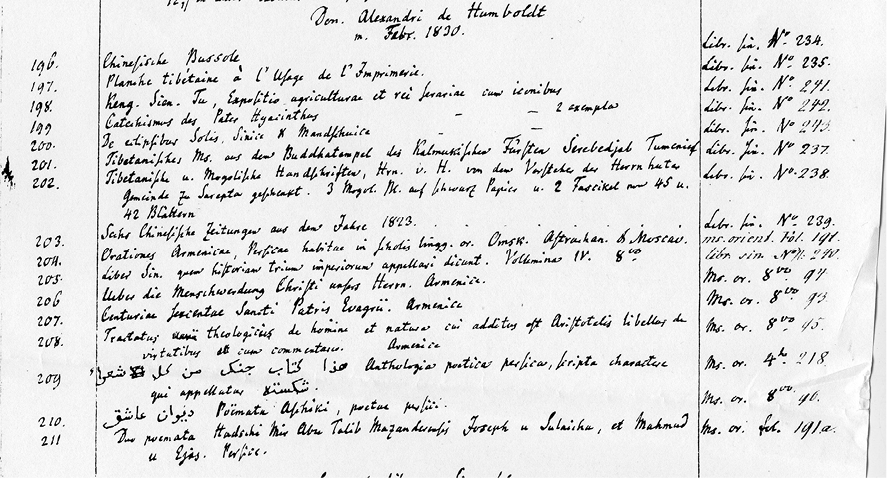 Don. Alexandri de Humboldt
m. Febr. 1830.
196. Chinesische Bussole Libr. sin. No. 234.
197. Planche tibétaine à l'Usage de l'Imprimerie. Libr. sin. No. 235.
198. Keng. Sien. Tu, Expositio agriculturae et rei serariae cum iconibus Libr. sin. No. 241.
199 Catechismus des Pater Hyacinthus – – 2 exempla Libr. sin. No. 242.
200. De eclipsibus Solis, Sinice & Mandschuice Libr. sin. No. 243.
201. Tibetanisches Ms. aus dem Buddhatempel des Kalmukischen Fürsten Serebedjab Tumenief Libr. sin. No. 237.
202. Tibetanische u. Mogolische Handschriften, Hrn. v. H. von dem Vorsteher der Herrnhuter Libr. sin. No. 238.
Gemeinde zu Sarepta geschenkt. 3 Mogol. M. auf schwarz Papier u. 2 Fascikel von 45 u.
42 Blättern
203. Sechs Chinesische Zeitungen aus dem Jahre 1823. Libr. sin. No. 239.
204. Orationes Armenicae, Persicae habitae in scholis lingg. or. Omsk. Astrachan. & Moscau. ms. orient. fol. 191.
205. Liber Sin. quem historiam trium imperiorum appellari dicunt. Volumina IV. 8vo libri sin. No. 240.
206 Ueber die Menschwerdung Christi unsers Herrn. Armenice. Ms. or. 8vo 94.
207. Centuriae sexcentae Sancti Patris Evagrii. Armenice Ms. or. 8vo 93.
208. Tractatus theologicus de homine et natura cui additus est Aristotelis libellus de Ms. or. 8vo 95.
virtutibus cum commentario. Armenice
209 هذا كتاب جنك من كل الاشعار Anthologia poetica persica, scripta charactere Ms. or. 4to 218.
qui appellatur شكسته.
210. ديوان عاشق Poëmata Aschiki, poetae persici. Ms. or. 8vo 40.
211 Duo poemata Hadschi Mir Abu Talib Mazanderensis Joseph u Suleicha, et Mahmud Ms. or. fol. 191a.
u Ejas. Persice.